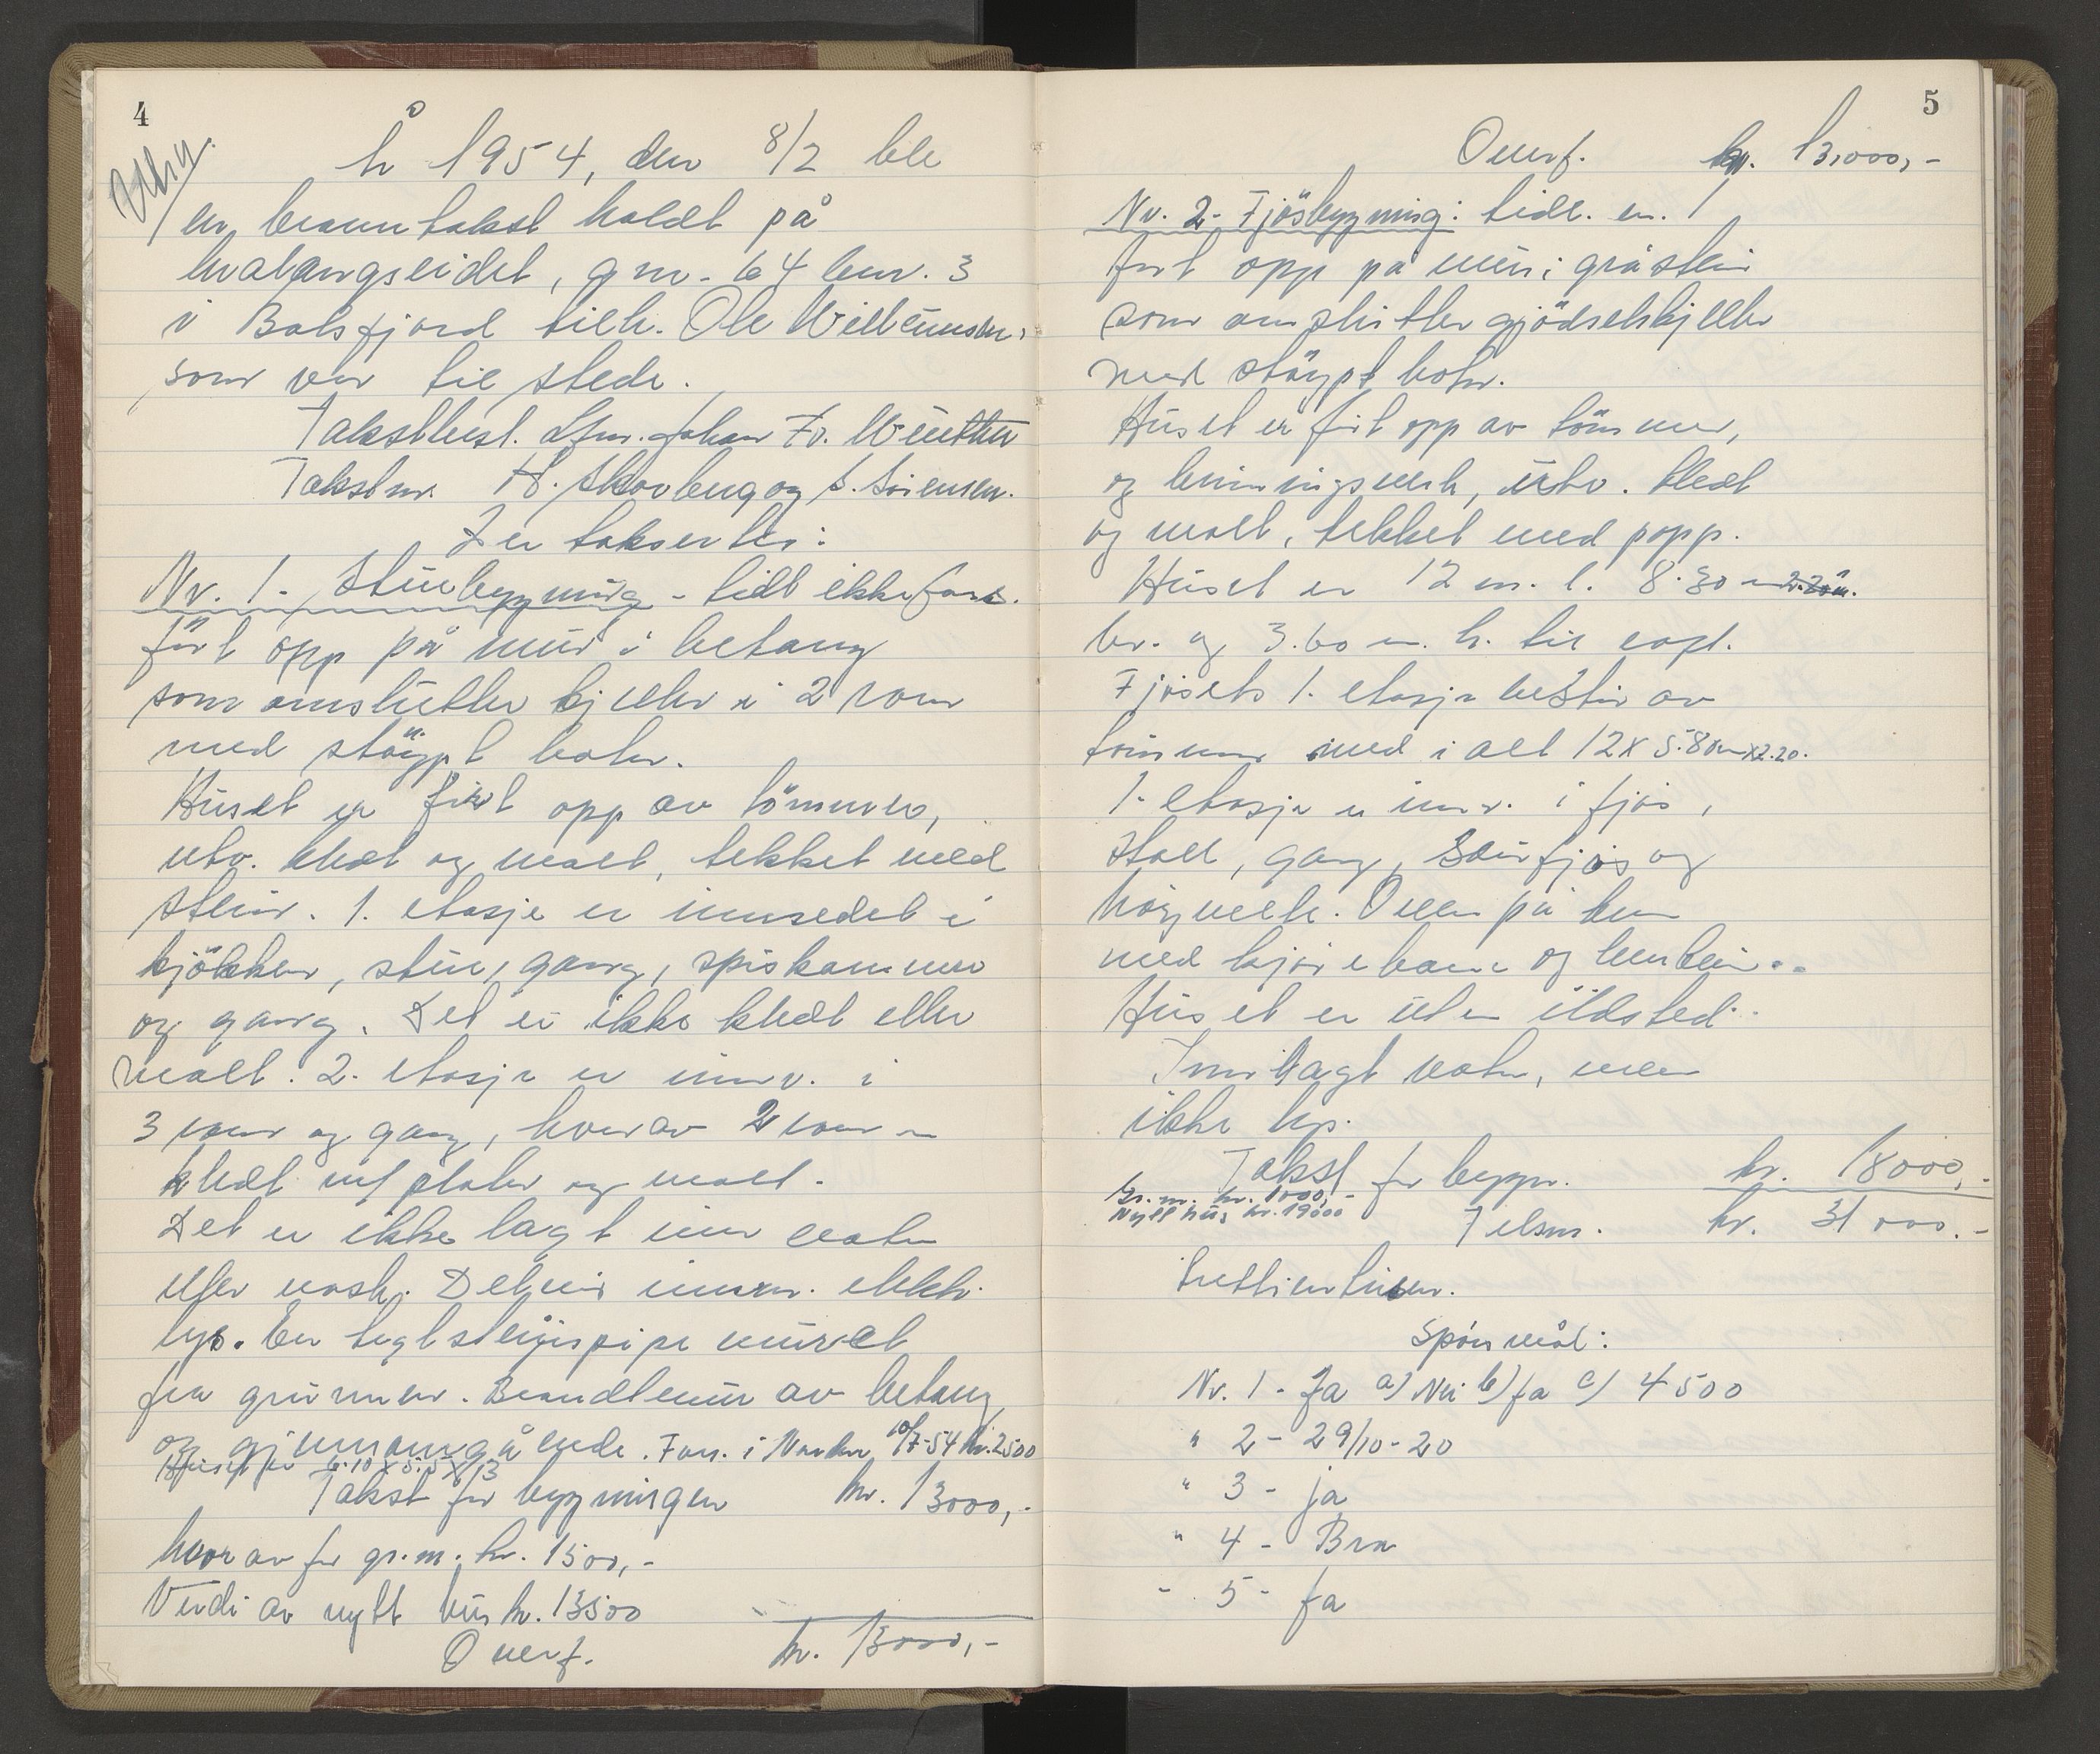 4
Utskr.
År 1954, den 8/2 ble
en branntakst holdt på
Malangseidet, gnr. 64 bnr. 3
i Balsfjord tilh. Ole Willumsen,
som var til stede.
Takstbest. Lfm. Johan Fr. Winther
Takstm. H. Skovbeng og S. Sörensen.
Der taksertes:
Nr. 1 - Stuebygning - tidl ikke fors.
fört opp på mur i betong
som omslutter kjeller i 2 rom
med stöypt botn.
Huset er fört opp av tömmer,
utv. kledt og malt, tekket med
stein. 1. etasje er innredet i
kjökken, stue, gang, spiskammer
og gang. Det er ikke kledt eller
malt. 2. etasje er innr. i
3 rom og gang, hvorav 2 rom er
kledt m/ plater og malt.
Det er ikke lagt inn vatn
eller vask. Det er innm. elektr.
lys. En teglsteinspipe muret
fra grunnen. Brandtmur av betong
og gjennomgående. Fors. i Norden 10/7-54 kr. 2500
Huset er 6.10 X 5.5 X
Takst for bygningen kr. 13000,-
hvorav for gr.m. kr. 1500,-
Verdi av nytt hus kr. 13500
Overf. kr. 13000,-
5
Overf. kr. 13,000,-
Nr. 2 - Fjösbygning: tidl. nr. 1
fört opp på mur i gråstein
som omslutter gjödselskjeller
med stöypt botn.
Huset er fört opp av tömmer,
og binningsverk, utv. kledt
og malt, tekket med papp.
Huset er 12 m. l. 8.30 m 2.20 m.
br. og 3.60 m. h. til raft.
Fjösets 1. etasje består av
tömmer med i alt 12 X 5.80 m X 2.20.
1. etasje er innr. i fjös,
stall, gang, saufjös og
höymele. Oven på
med kjörebane og
Huset er uten ildsted.
Innlagt vatn, men
ikke lys.
Takst for bygn. kr. 18000,-
Gr.m. kr. 1000,-
Nytt hus kr. 19000
Tilsm. kr. 31000.-
trettientusen.
Spörsmål:
Nr. 1 - Ja a) Nei b) Ja c) 4500
" 2 - 29/10-20
" 3 - ja
" 4 - Bra
- 5 - Ja